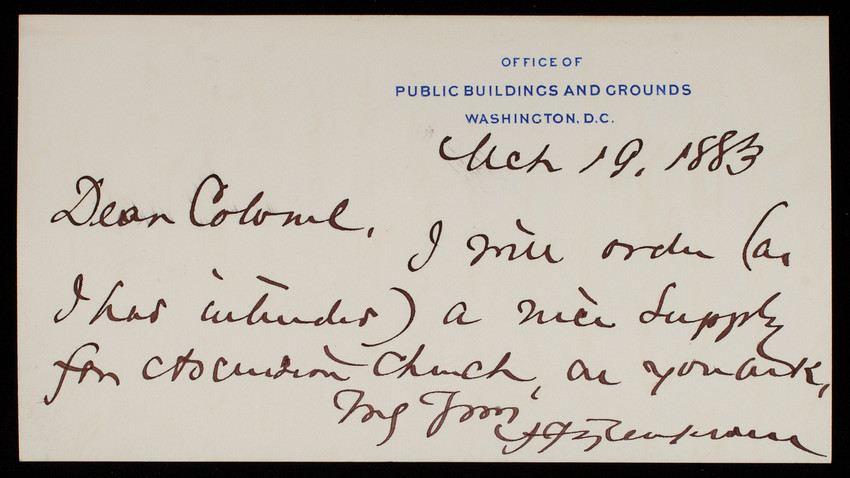 OFFICE OF
PUBLIC BUILDINGS AND GROUNDS
WASHINGTON, D.C.
Mch 19, 1883
Dear Colonel,
I will order (as
I had intended) a nice supply
for Ascension Church, as you ask,
Truly Yours,